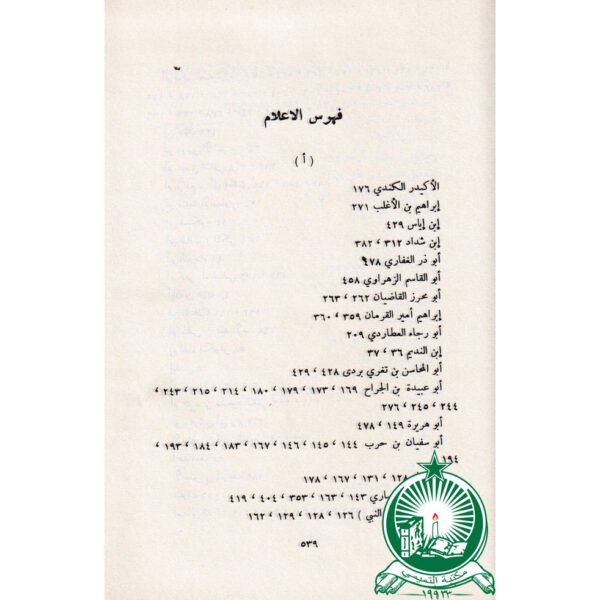 فهرس الاعلام
( أ )
الأكيدر الكندي ١٧٦
إبراهيم بن الأغلب ٢٧١
إبن إياس ٤٢٩
إبن شداد ٣١٢ ، ٣٨٢
أبو ذر الغفاري ٤٧٨
أبو القاسم الزهراوي ٤٥٨
أبو محرز القاضيان ٢٦٢ ، ٢٦٣
إبراهيم أمير القرمان ٣٥٩ ، ٣٦٠
أبو رجاء العطاردي ٢٠٩
إبن النديم ٣٦ ، ٣٧
أبو المحاسن بن تغري بردى ٤٢٨ ، ٤٢٩
أبو عبيدة بن الجراح ١٦٩ ، ١٧٣ ، ١٧٩ ، ١٨٠ ، ٢١٤ ، ٢١٥ ، ٢٤٣ ،
٢٤٤ ، ٢٤٥ ، ٢٧٦
أبو هريرة ١٤٩ ، ٤٧٨
أبو سفيان بن حرب ١٤٤ ، ١٤٥ ، ١٤٦ ، ١٦٧ ، ١٨٣ ، ١٨٤ ، ١٩٣ ،
١٩٤
١٢٨ ، ١٣١ ، ١٦٧ ، ١٧٨
اري ١٤٣ ، ١٦٣ ، ٣٥٣ ، ٤٠٤ ، ٤١٩
النبي ) ١٢٦ ، ١٢٨ ، ١٢٩ ، ١٦٢
٥٣٩
مكتبة التميمي